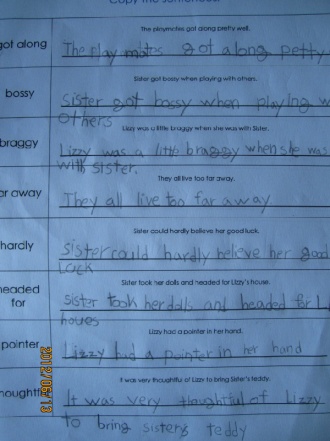 Copy the sentences.
The playmates got along pretty well.
got along
The play mates got along petty
Sister got bossy when playing with others.
bossy
Sister got bossy when playing w
others
Lizzy was a little braggy when she was with Sister.
braggy
Lizzy was a little braggy when she was
with sister.
They all live too far away.
or away
They all live too far away
Sister could hardly believe her good luck.
hardly
Sister could hardly helieve her good
Luck
Sister took her dolls and headed for Lizzy's house.
headed
for
Sister took her dolls and headed for Li
houes
Lizzy had a pointer in her hand.
pointer
Lizzy had a pointer in her hand
It was very thoughtful of Lizzy to bring Sister's teddy.
noughtful
It was very thoughtful of Lizzy
to bring sisters teddy
2012/06/13